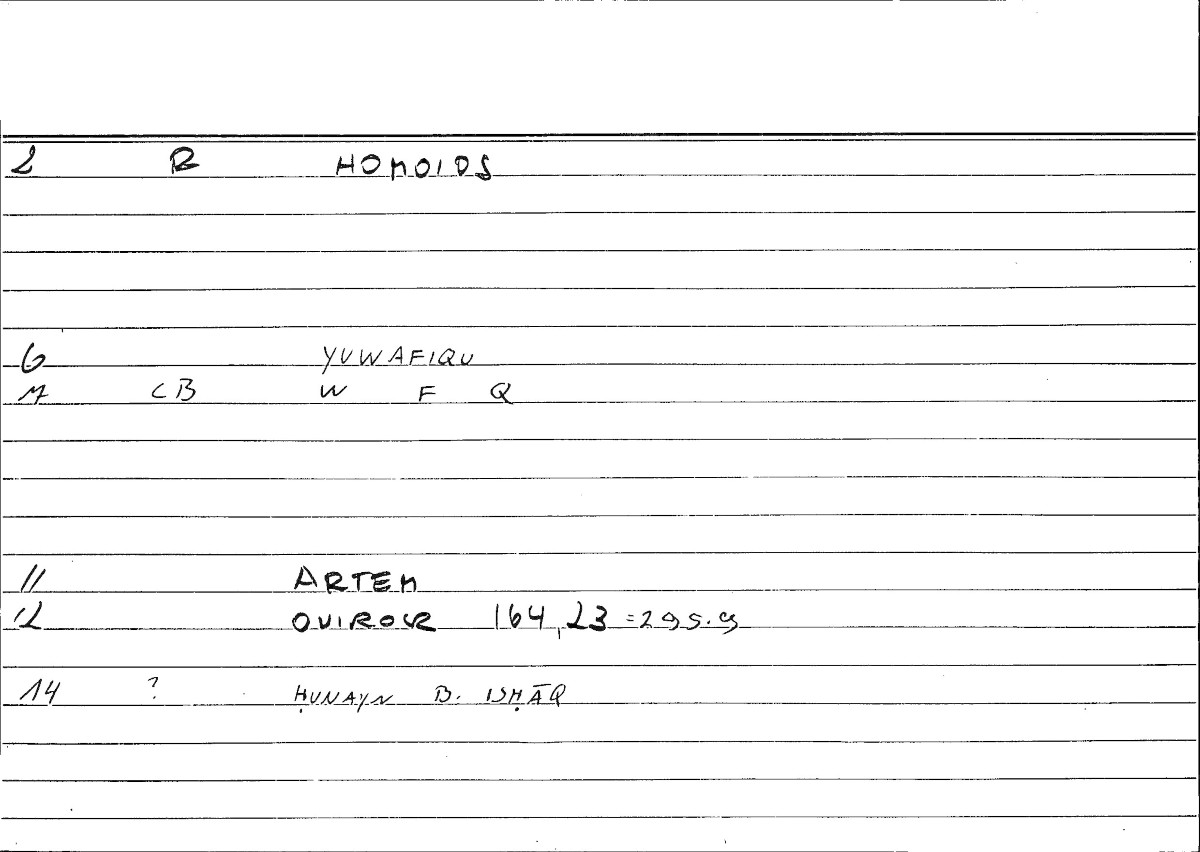 2 R HOMOIOS
6 YUWAFIQU
7 CB W F Q
11 ARTEM
12 ONIROCR 164,23 =295.9
14 ? ḤUNAYN B. ISḤĀQ